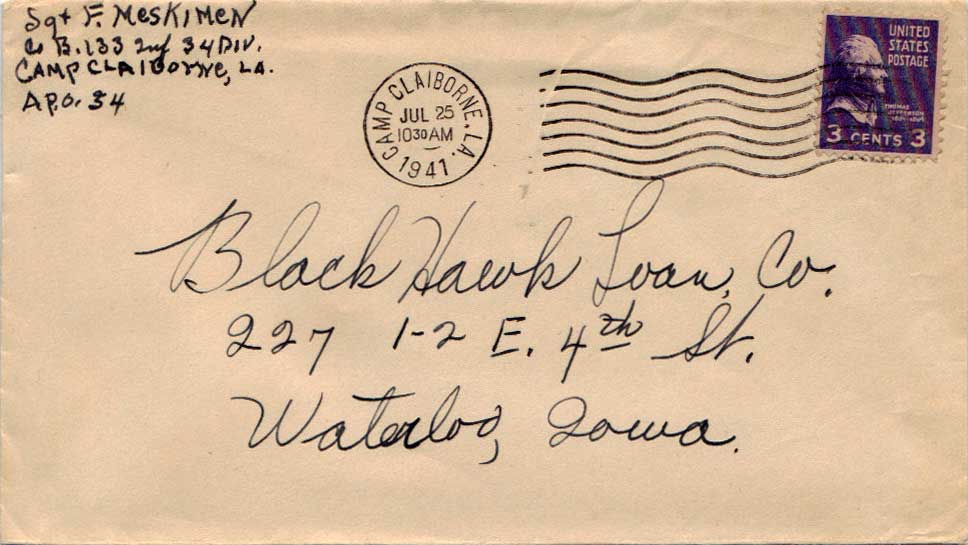 Sgt F. Meskimen
Co B. 133 Inf 34 Div.
Camp Claiborne, LA.
A.P.O. 34
CAMP CLAIBORNE, LA.
JUL 25
10 30 AM
1941
UNITED
STATES
POSTAGE
THOMAS
JEFFERSON
1801-1809
3 CENTS 3
Black Hawk Loan, Co.
227 1-2 E. 4th St.
Waterloo, Iowa.